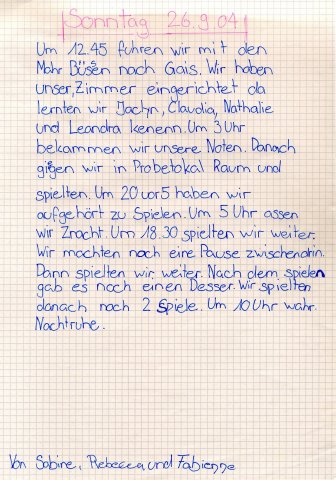 Sonntag 26.9.04
Um 12.45 fuhren wir mit den
Mohr Büssen nach Gais. Wir haben
unser Zimmer eingerichtet da
lernten wir Jaclyn, Claudia, Nathalie
und Leandra kenenn. Um 3 Uhr
bekammen wir unsere Noten. Danach
gigen wir in Probelokal Raum und
spielten. Um 20 vor 5 haben wir
aufgehört zu Spielen. Um 5 Uhr assen
wir Znacht. Um 18.30 spielten wir weiter.
Wir machten noch eine Pause zwischendrin.
Dann spielten wir weiter. Nach dem spielen
gab es noch einen Desser. Wir spielten
danach noch 2 Spiele. Um 10 Uhr wahr
Nachtruhe.
Von Sabine, Rebecca und Fabienne